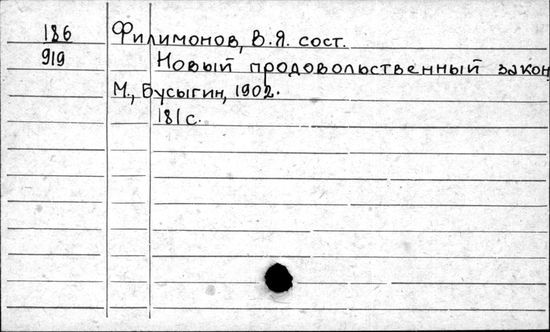 186 Филимонов, В.Я. сост.
919 Новый продовольственный закон
М., Бусыгин, 1902.
181с.